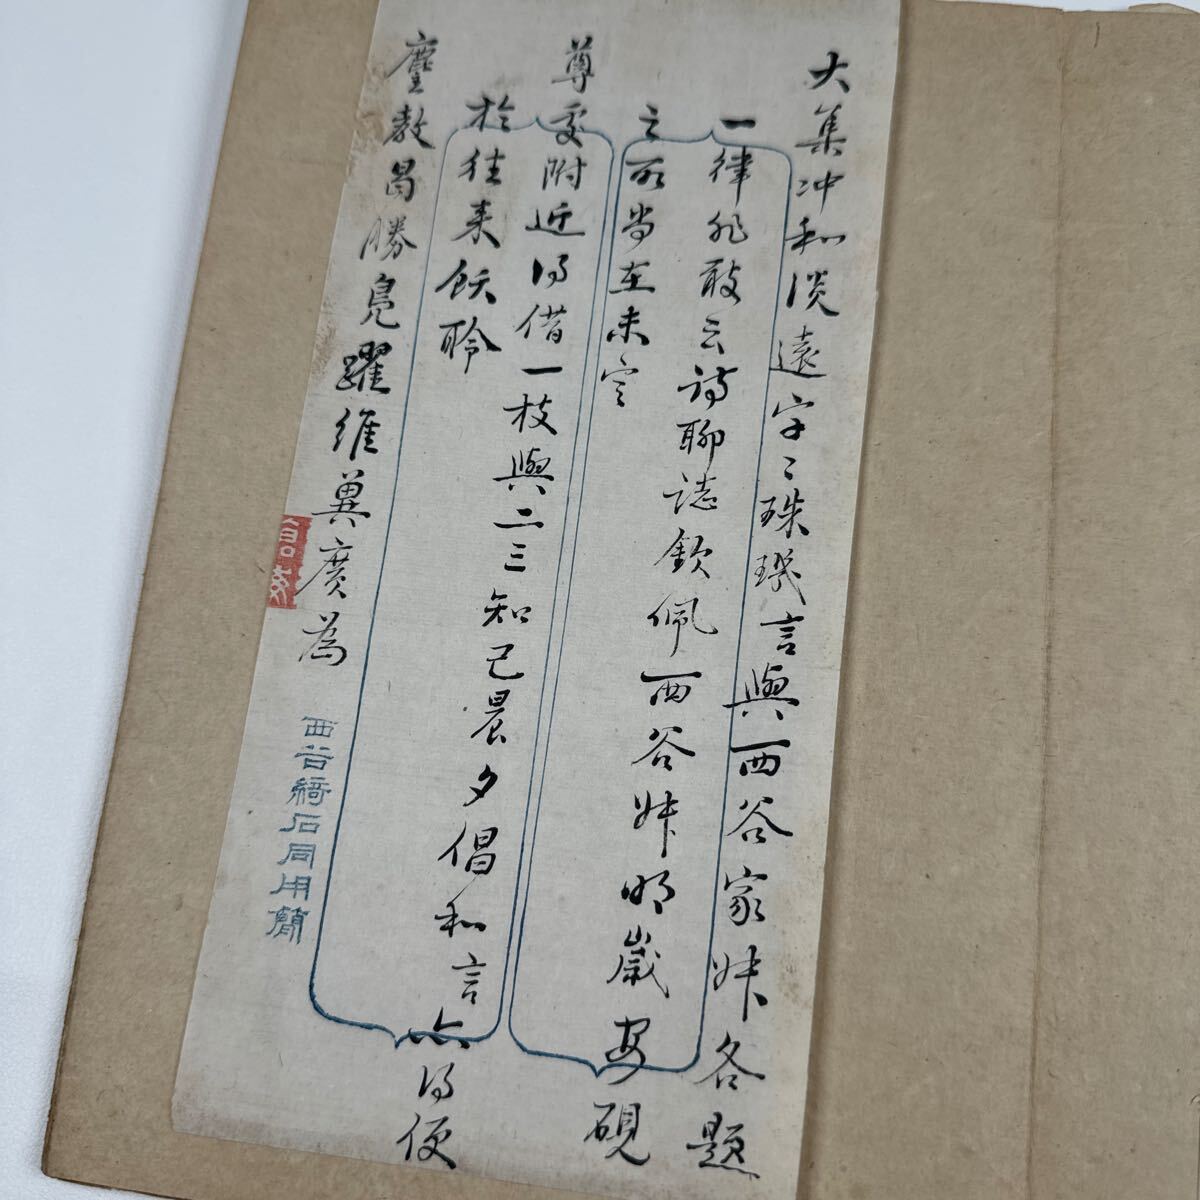 大集沖和淡遠字〻珠璣言與西谷家妹各題
一律非敢云詩聊誌欽佩西谷妹明歲安硯
之所尚在未定
尊處附近得借一枝與二三知己晨夕倡和言亦得便
於往來飫聆
麈教曷勝鳧躍維冀廣為
西谷綺石同用簡